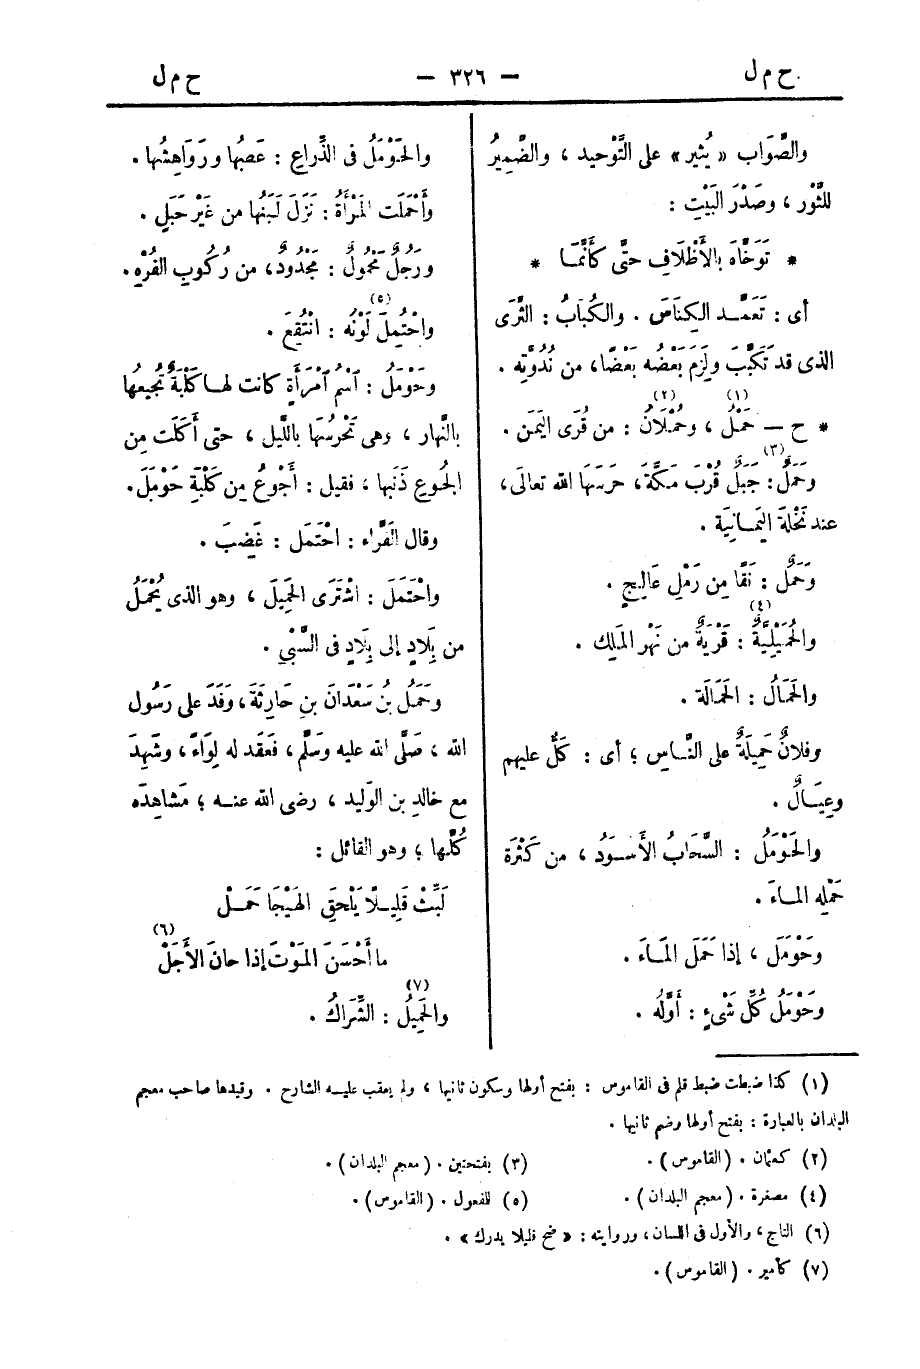 ح م ل — ٣٢٦ — ح م ل
والصَّوَاب « يُثير » على التَّوْحيد ، والضَّمِيرُ
للثَّوْر ، وصَدْرَ البَيْتِ :
* تَوَخَّاهُ بالأَظْلَافِ حتَّى كأَنَّمَا *
أى : تَعَمَّد الكِنَاسَ . والكُبَابُ : الثَّرَى
الذى قد تَكَبَّبَ ولَزِمَ بَعْضُه بَعْضًا ، من نُدُوَّتِه .
* ح — حَمْلٌ (١) ، وحُمْلَانُ (٢) : من قُرَى اليَمَن .
وحَمَلٌ (٣) : جَبَلٌ قُرْبَ مَكَّةَ ، حَرَسَهَا الله تعالَى ،
عند نَخْلَةَ اليَمَانِيَة .
وحَمَلٌ : نَقًا مِن رَمْلِ عَالِجٍ .
والحُمَيْلِيَّةُ (٤) : قَرْيَةٌ من نَهْرِ المَلِك .
والحَمَالُ : الحَمَالَة .
وفلانٌ حَمِيلَةٌ على النَّاسِ ؛ أى : كَلٌّ عليهم
وعِيَالٌ .
والحَوْمَلُ : السَّحَابُ الأَسْوَدُ ، من كَثْرَة
حَمْلِه المـاءَ .
وحَوْمَلَ ، إذا حَمَلَ المَـاءَ .
وحَوْمَلُ كُلِّ شَىْءٍ : أَوَّلُه .
والحَوْمَلُ فى الذِّراعِ : عَصَبُها ورَوَاهِشُها .
وأَحْمَلَت المَرْأَةُ : نَزَلَ لَبَنُها من غَيْرِ حَبَلٍ .
ورَجُلٌ مَحْمُولٌ : مَجْدُودٌ ، من رُكُوبِ الفُرْهِ .
واحْتُمِلَ (٥) لَوْنُه : انْتُقِعَ .
وحَوْمَلُ : اسْمُ امْرَأَةٍ كانت لها كَلْبَةٌ تُجِيعُها
بالنَّهار ، وهى تَحْرُسُها باللَّيل ، حتى أَكَلَت مِن
الجُـوعِ ذَنَبَها ، فقيل : أَجْوَعُ مِن كَلْبَةِ حَوْمَلَ .
وقال الفَرَّاء : احْتَمَل : غَضِبَ .
واحْتَمَلَ : اشْتَرَى الحَمِيلَ ، وهو الذى يُحْمَلُ
من بِلَادٍ إلى بِلَادٍ فى السَّبْىِ .
وحَمَلُ بنُ سَعْدَانَ بنِ حَارِثَةَ ، وَفَدَ على رَسُول
الله ، صَلَّى الله عليه وسَلَّم ، فعَقَد له لِوَاءً ، وشَهِدَ
مع خالدِ بن الوَليد ، رضى الله عنـه ؛ مَشاهِدَه
كُلَّها ؛ وهو القائل :
لَبِّثْ قَلِيـلًا يَلْحَقِ الهَيْجَا حَمَـلْ
ما أَحْسَنَ المَوْتَ إذا حانَ الأَجَلْ (٦)
والحَمِيلُ (٧) : الشِّرَاكُ .
(١) كذا ضبطت ضبط قلم فى القاموس : بفتح أولها وسكون ثانيها ، ولم يعقب عليـه الشارح . وقيدها صاحب معجم
البلدان بالعبارة : بفتح أولها وضم ثانيها .
(٢) كعثمان . (القاموس) . (٣) بفتحتين . (معجم البلدان) .
(٤) مصغرة . (معجم البلدان) . (٥) للفعول . (القاموس) .
(٦) التاج ، والأول فى اللسان ، وروايته : « ضح قليلا يدرك » .
(٧) كأمير . (القاموس) .